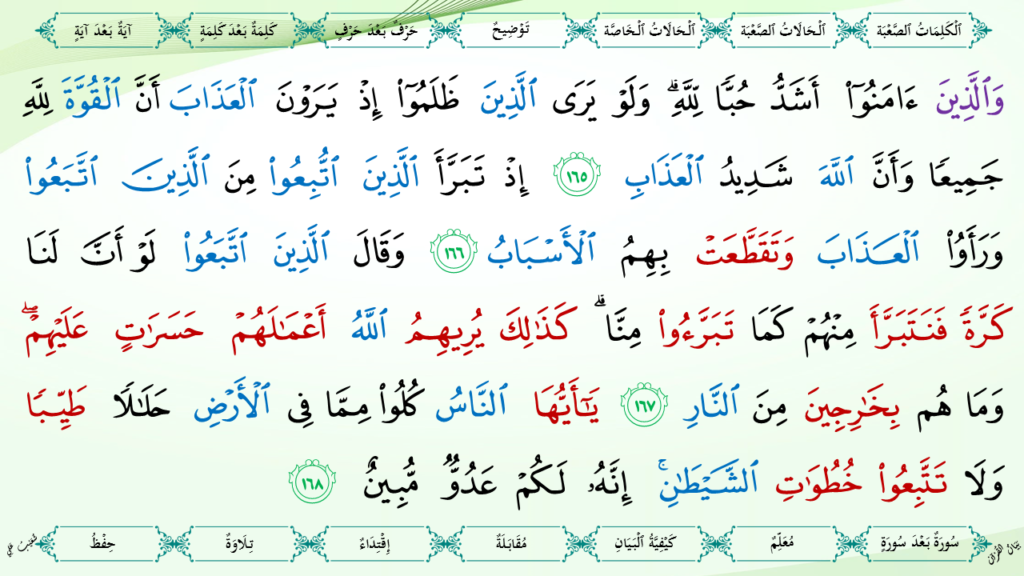 اَلْكَلِمَاتُ الصَّعْبَة اَلْحَالَاتُ الصَّعْبَة اَلْحَالَاتُ الْخَاصَّة تَوْضِيحٌ حَرْفٌ بَعْدَ حَرْفٍ كَلِمَةٌ بَعْدَ كَلِمَةٍ آيَةٌ بَعْدَ آيَةٍ
وَٱلَّذِينَ ءَامَنُوٓاْ أَشَدُّ حُبًّا لِّلَّهِۗ وَلَوْ يَرَى ٱلَّذِينَ ظَلَمُوٓاْ إِذْ يَرَوْنَ ٱلْعَذَابَ أَنَّ ٱلْقُوَّةَ لِلَّهِ
جَمِيعًا وَأَنَّ ٱللَّهَ شَدِيدُ ٱلْعَذَابِ ١٦٥ إِذْ تَبَرَّأَ ٱلَّذِينَ ٱتُّبِعُواْ مِنَ ٱلَّذِينَ ٱتَّبَعُواْ
وَرَأَوُاْ ٱلْعَذَابَ وَتَقَطَّعَتْ بِهِمُ ٱلْأَسْبَابُ ١٦٦ وَقَالَ ٱلَّذِينَ ٱتَّبَعُواْ لَوْ أَنَّ لَنَا
كَرَّةً فَنَتَبَرَّأَ مِنْهُمْ كَمَا تَبَرَّءُواْ مِنَّاۗ كَذَٰلِكَ يُرِيهِمُ ٱللَّهُ أَعْمَٰلَهُمْ حَسَرَٰتٍ عَلَيْهِمْۖ
وَمَا هُم بِخَٰرِجِينَ مِنَ ٱلنَّارِ ١٦٧ يَٰٓأَيُّهَا ٱلنَّاسُ كُلُواْ مِمَّا فِى ٱلْأَرْضِ حَلَٰلًا طَيِّبًا
وَلَا تَتَّبِعُواْ خُطُوَٰتِ ٱلشَّيْطَٰنِۚ إِنَّهُۥ لَكُمْ عَدُوٌّ مُّبِينٌ ١٦٨
سُورَةٌ بَعْدَ سُورَةٍ مُعَلِّمٌ كَيْفِيَّةُ الْبَيَانِ مُقَابَلَةٌ إِقْتِدَاءٌ تِلَاوَةٌ حِفْظٌ